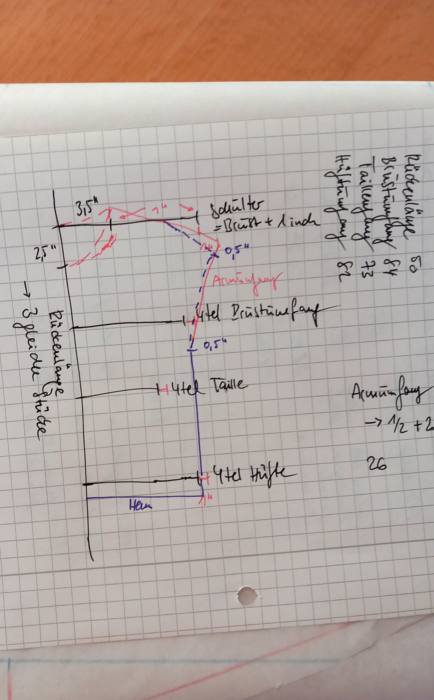 Rückenlänge 50
Brustumfang 84
Taillenumfang 73
Hüftumfang 82
3,5"
1"
Schulter
= Brust + 1 inch
2,5"
1"
0,5"
Armumfang
4tel Brustumfang
Rückenlänge
→ 3 gleiche Stücke
0,5"
4tel Taille
Armumfang
→ 1/2 + 2
26
4tel Hüfte
Hem
1"